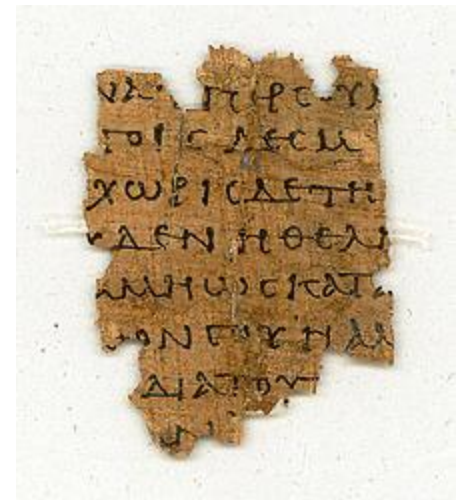 ΝΑ ΠΕΡϹΟΥ
ΤΟΙϹΔΕϹΜ
ΧΩΡΙϹΔΕΤΗ
ΥΔΕΝΗΘΕΛΗ
ΑΜΗΩϹΚΑΤ
ΟΝϹΟΥΗΑΛ
ΔΙΑΤΟΥ
ΩΝΙ